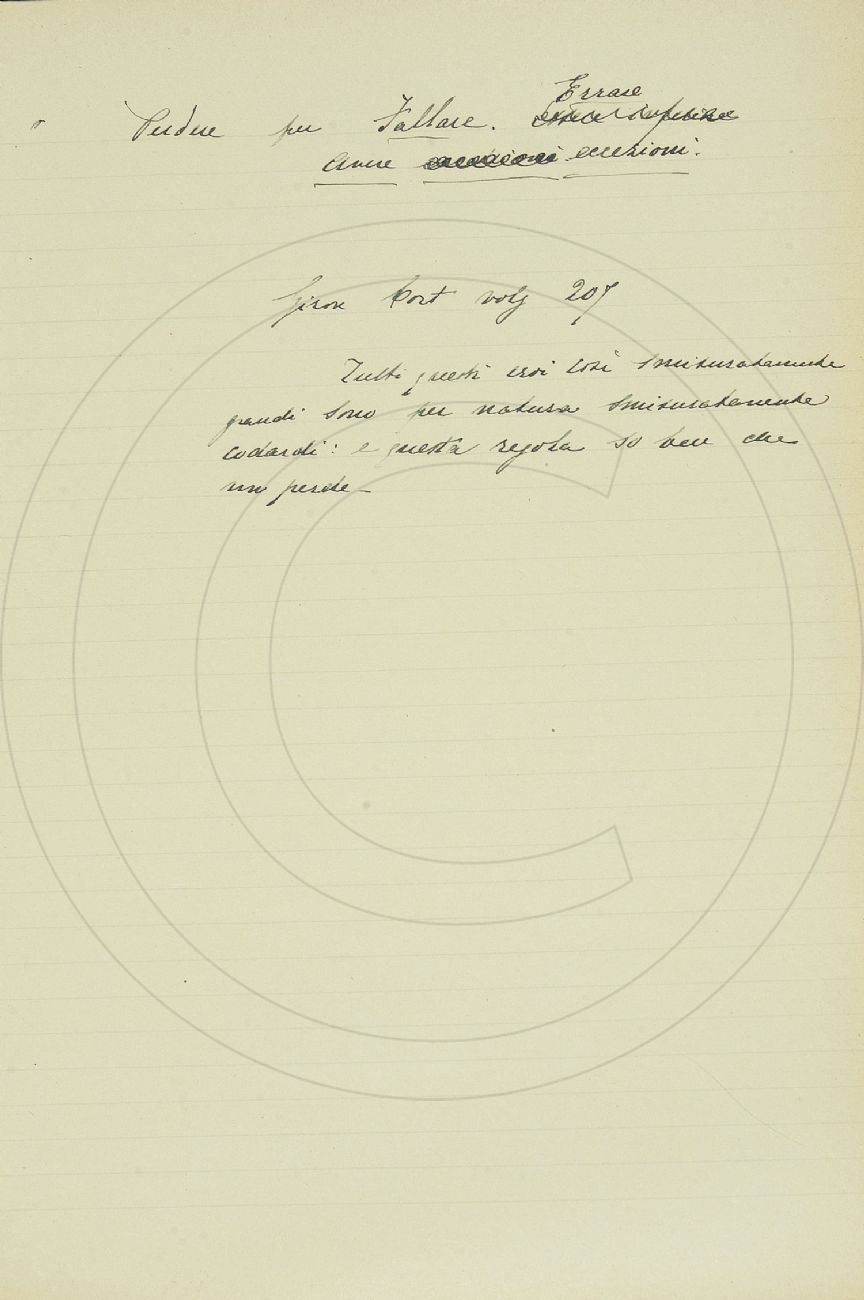 Errare
Perdere per Fallare.
Avere eccezioni.
Giron Cort volg 207
Tutti questi eroi così smisuratamente
grandi sono per natura smisuratamente
codardi: e questa regola so ben che
non perde